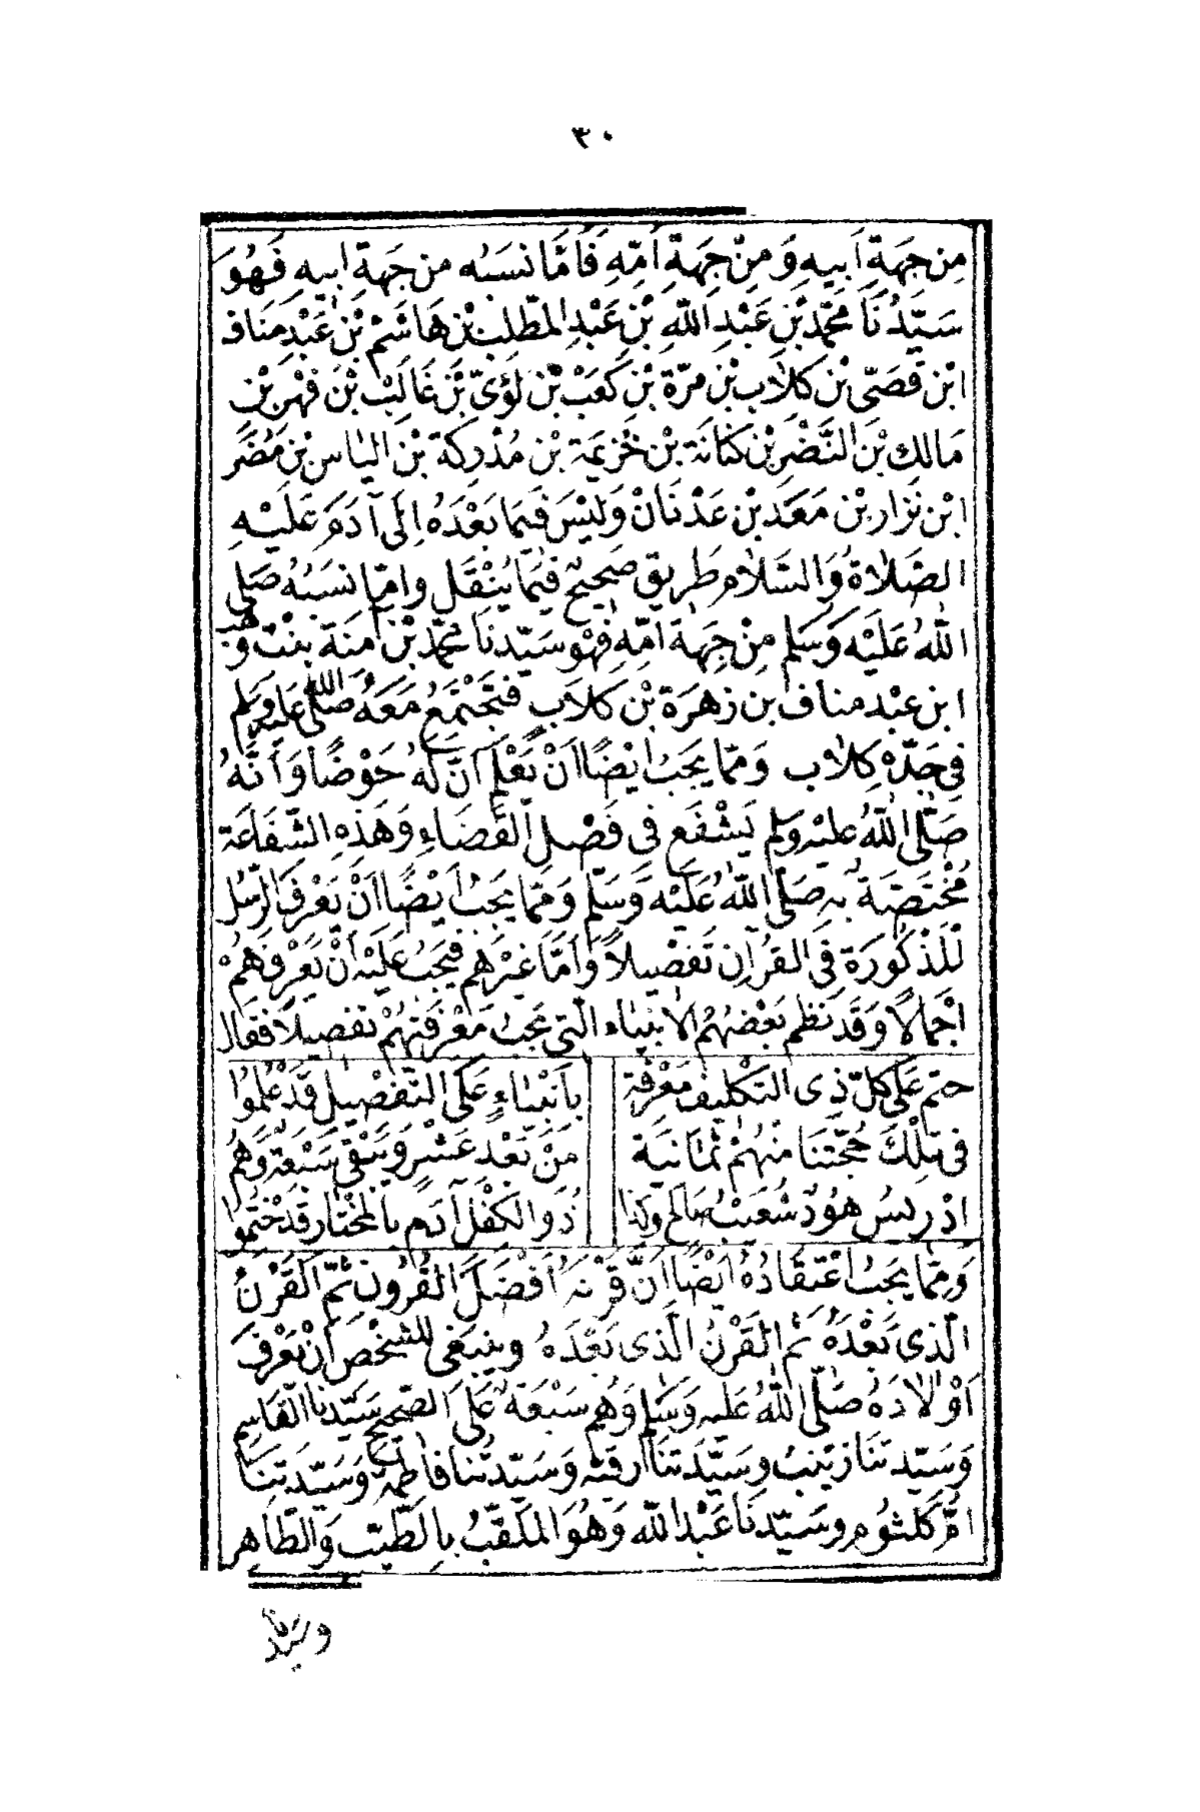 ٣٠
مِن جِهَةِ اَبيهِ وَمِنْ جِهَةِ اُمِّهِ فَاَمَّا نسَبُه من جهَةِ ابيهِ فَهُوَ
سَيِّدُنَا محمَّد بْنِ عَبْدِ اللّٰهِ بْنِ عَبْدِ المطَّلِبْ بْن هَاشَمْ بْن عَبْدِ مَنَاف
ابْن قُصَىّ بْن كلاَب بْن مرّة بْنِ كَعَبْ بْن لُؤىّ بْن غَالِبْ بْن فِهْر بْن
مَالِك بْن النَّضْر بْن كنَانَة بْن خُزيمَة بْن مُدْركَة بْن اليَاس بْن مُضَر
ابْن نِزَار بْن مَعَد بْن عَدْنَانْ وَلَيْسَ فيمَا بَعْدَهُ اِلَى آدَمَ عَلَيْهِ
الصَّلاَةُ وَالسَّلاَم طَرِيق صَحِيحٌ فيمَا يُنْقَل وامّا نسَبُهُ صَلى
اللّٰهُ عَلَيْهِ وَسَلم مِنْ جِهَة اُمّهِ فهُو سَيِّدنَا محمّد بْن آمنَة بِنْت وَهْب
ابن عبْد مناف بن زهْرَة بْن كلاَب فتجْتَمعُ مَعَهُ صَلَّى اللّٰه عَليْه وَسَلم
فى جَدّهِ كِلاَب وَممّا يَجبُ ايْضًا اَنْ يَعْلم اَنَّ لَهُ حَوْضًا وَاَنَّهُ
صَلّى اللّٰهُ عليْه وَسَلم يَشْفَع فى فَصْل القَضَاءِ وَهَذِهِ الشَّفَاعَة
مُخْتَصَّة بِهِ صَلَّى اللّٰهُ عَلَيْه وَسَلَّم وَممّا يَجبُ اَيْضًا اَنْ يَعْرفَ الرُّسُل
المَذْكُورَة فى القُرآن تَفصْيلاً وَاَمَّا غيْرهم فَيجبُ عَلَيْه اَنْ يَعْرفهُمْ
اجْمَالاً وَقَد نَظم بَعْضهُمُ الاَنبيَاء الَّتى يجبُ مَعْرفَتِهُمْ تفصيلاً فقال
حتم عَلى كلّ ذِى التكْليف مَعْرفة    بأنبيَاءٍ عَلَى التَّفصْيل قَد عُلمُوا
فى تلِكَ حُجّتنَا منْهُمْ ثمَانيَة    منْ بَعْد عَشْر وَيَبْقى سَبْعَة وَهُمُ
ادْريسُ هُودٌ شُعَيْبُ صَالح وكَذا    ذُو الكفْل آدَم بالمُخْتَار قَدْ خُتِمُوا
وَممَّا يجَبُ اعْتقَادُهُ اَيْضًا اَنَّ قَرْنَهُ اَفْضَلُ القُرُون ثمَّ القَرْنُ
الّذِى بَعْدَهُ ثمَّ القَرْنُ الَّذى بَعْدَهُ وينبَغى للشّخْص اَنْ يَعْرفَ
اَوْلاَدَهُ صَلّى اللّٰهُ عَليْه وَسَلم وَهُم سَبْعَة عَلَى الصَّحِيح سَيّدنا القَاسِم
وَسَيّدتنَا زيْنبُ وسَيِّدَتنَا رقيّة وَسَيّدتُنا فاطمَة وَسَيّدَتنَا
امُّ كلثوُم وسَيّدنَا عَبْد اللّٰه وَهُوَ المُلَقّبُ باِلطّيّب وَالطَّاهر
وسيدنا